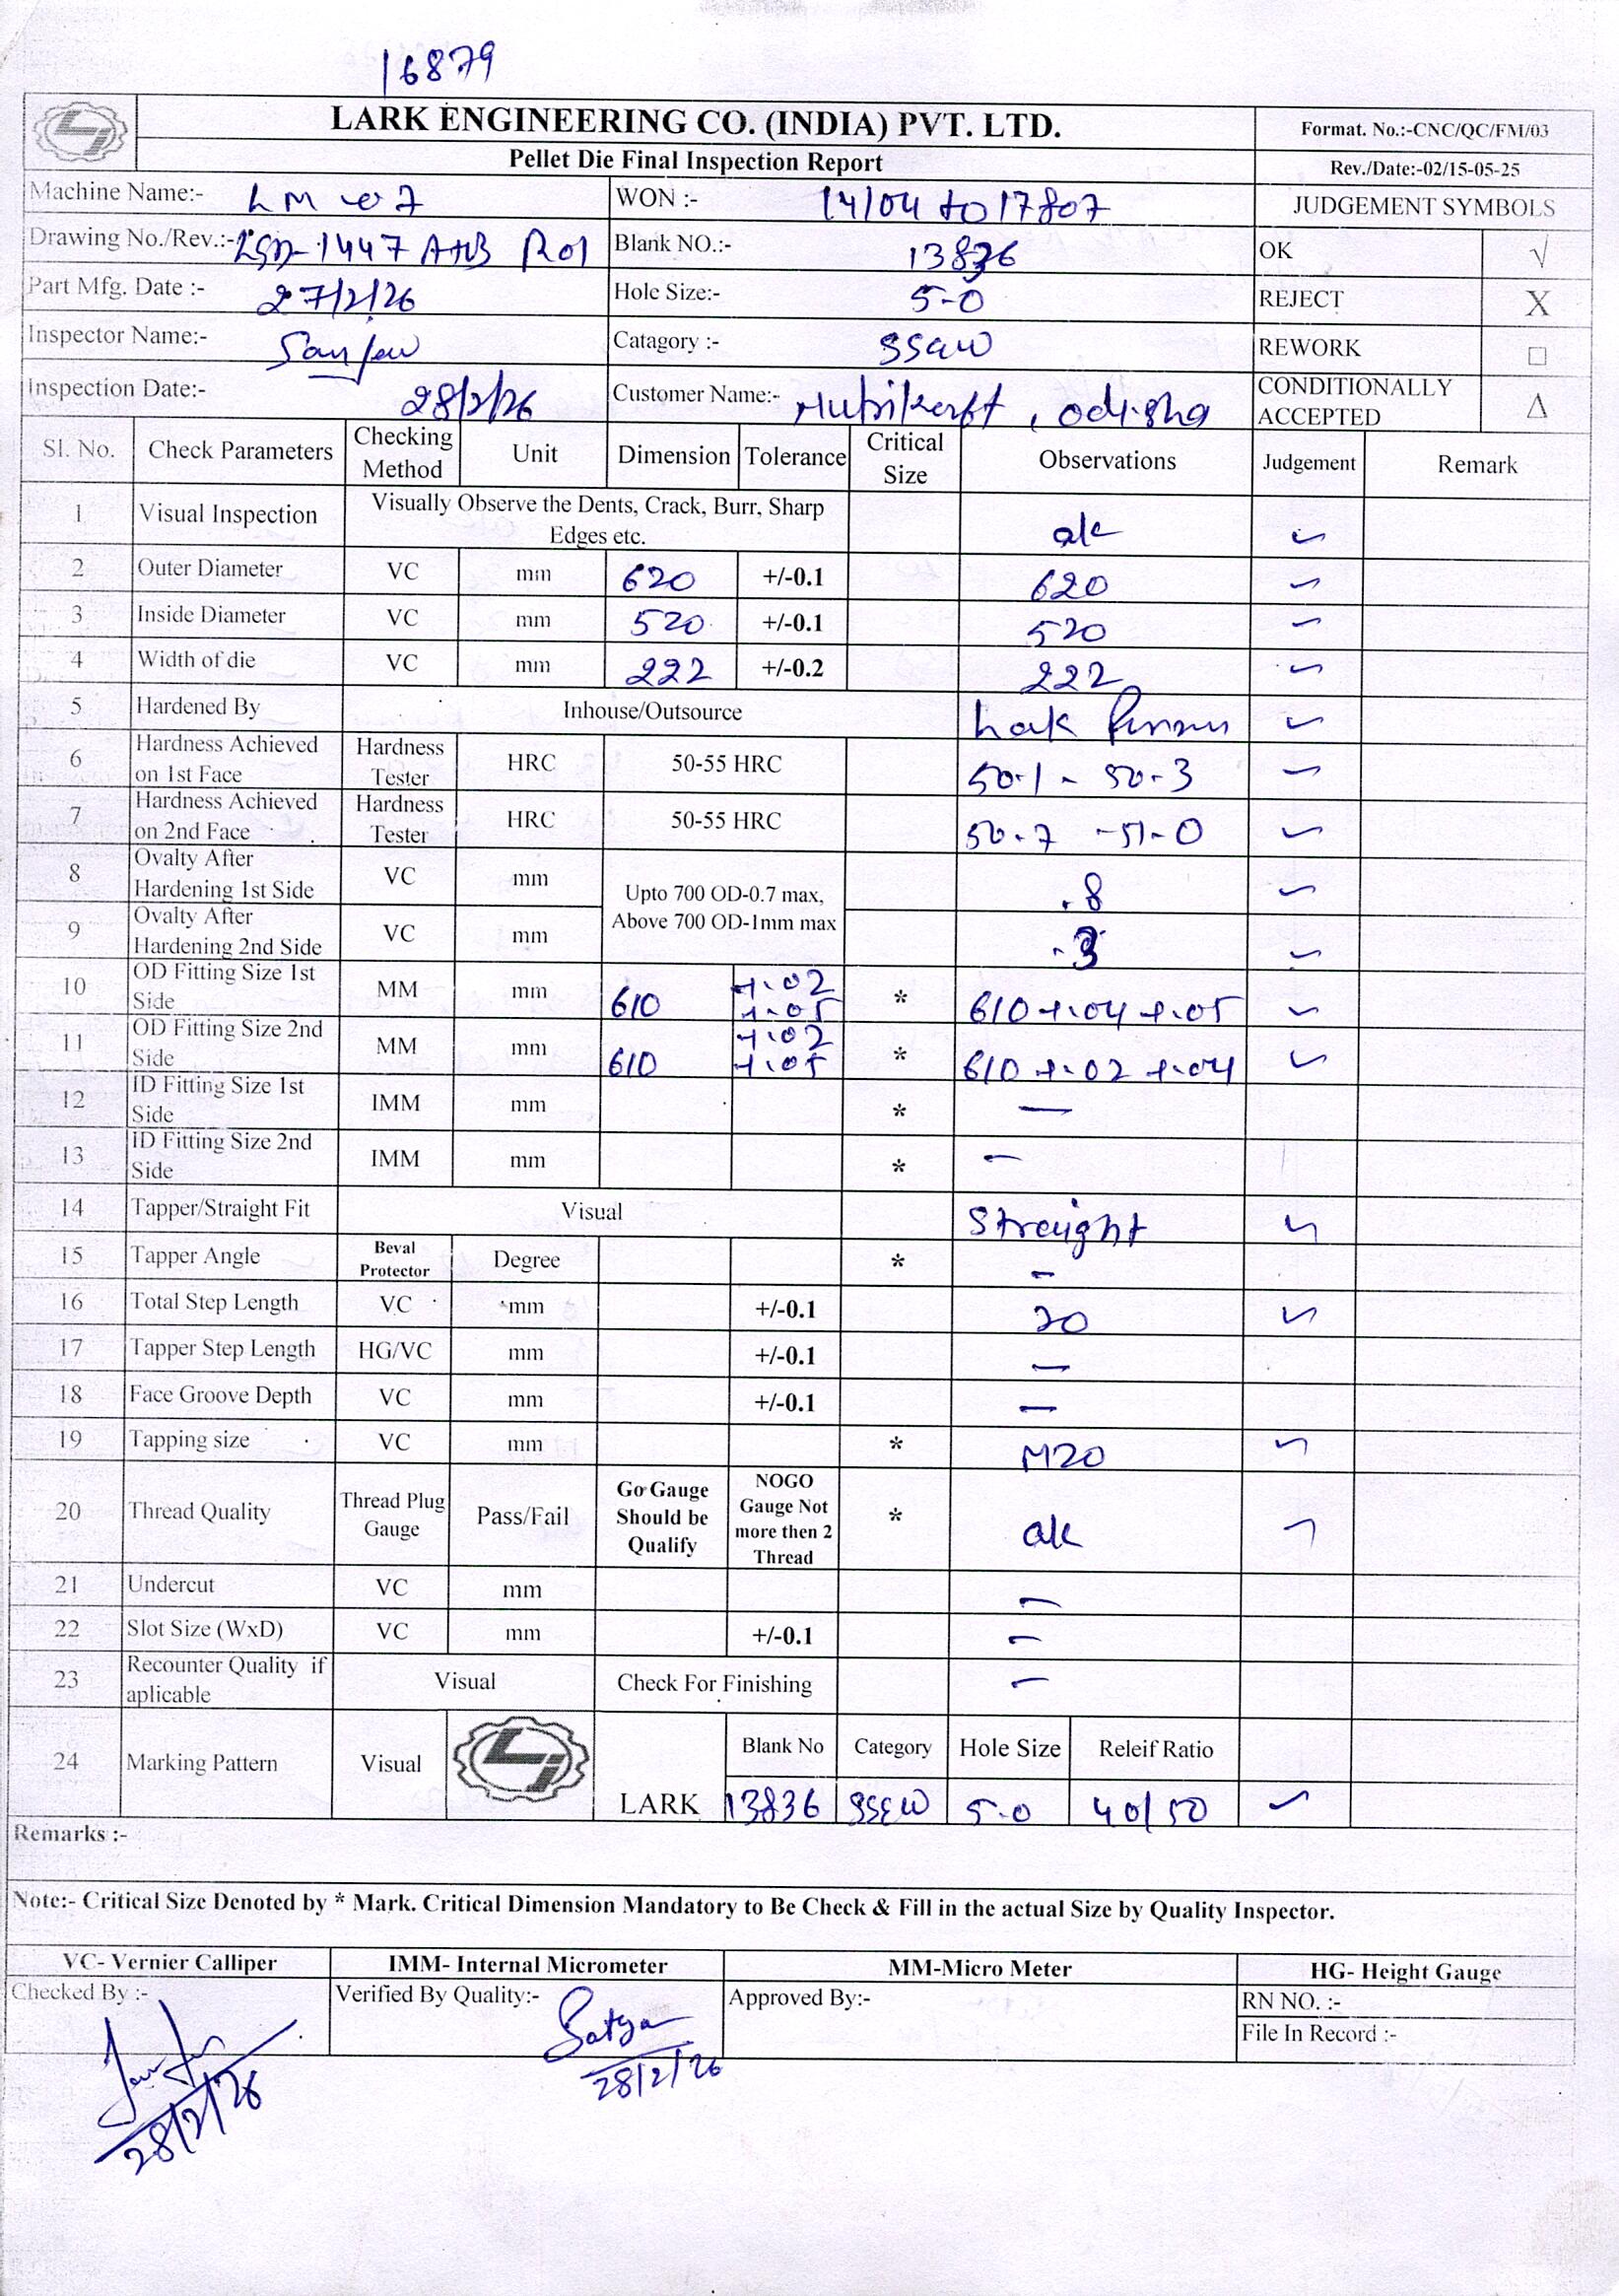 16879
LARK ENGINEERING CO. (INDIA) PVT. LTD.
Format. No.:-CNC/QC/FM/03
Pellet Die Final Inspection Report
Rev./Date:-02/15-05-25
Machine Name:- LM 07 WON :- 14/04 to 17807 JUDGEMENT SYMBOLS
Drawing No./Rev.:- 1447 A+B R01 Blank NO.:- 13836 OK √
Part Mfg. Date :- 27/2/26 Hole Size:- 5-0 REJECT X
Inspector Name:- Catagory :- REWORK □
Inspection Date:- 28/2/26 Customer Name:- , odisha CONDITIONALLY ACCEPTED Δ
Sl. No. Check Parameters Checking Method Unit Dimension Tolerance Critical Size Observations Judgement Remark
1 Visual Inspection Visually Observe the Dents, Crack, Burr, Sharp Edges etc. ok ✓
2 Outer Diameter VC mm 620 +/-0.1 620 ✓
3 Inside Diameter VC mm 520 +/-0.1 520 ✓
4 Width of die VC mm 222 +/-0.2 222 ✓
5 Hardened By Inhouse/Outsource ✓
6 Hardness Achieved on 1st Face Hardness Tester HRC 50-55 HRC 50.1 - 50.3 ✓
7 Hardness Achieved on 2nd Face Hardness Tester HRC 50-55 HRC 50.7 - 51.0 ✓
8 Ovalty After Hardening 1st Side VC mm Upto 700 OD-0.7 max, Above 700 OD-1mm max .8 ✓
9 Ovalty After Hardening 2nd Side VC mm .3 ✓
10 OD Fitting Size 1st Side MM mm 610 +.02 +.05 * 610 +.04 +.05 ✓
11 OD Fitting Size 2nd Side MM mm 610 +.02 +.05 * 610 +.02 +.04 ✓
12 ID Fitting Size 1st Side IMM mm * —
13 ID Fitting Size 2nd Side IMM mm * —
14 Tapper/Straight Fit Visual Streight ✓
15 Tapper Angle Beval Protector Degree * —
16 Total Step Length VC mm +/-0.1 20 ✓
17 Tapper Step Length HG/VC mm +/-0.1 —
18 Face Groove Depth VC mm +/-0.1 —
19 Tapping size VC mm * M20 ✓
20 Thread Quality Thread Plug Gauge Pass/Fail Go Gauge Should be Qualify NOGO Gauge Not more then 2 Thread * ok ✓
21 Undercut VC mm —
22 Slot Size (WxD) VC mm +/-0.1 —
23 Recounter Quality if aplicable Visual Check For Finishing —
24 Marking Pattern Visual LARK Blank No Category Hole Size Releif Ratio
13836 5.0 40/50 ✓
Remarks :-
Note:- Critical Size Denoted by * Mark. Critical Dimension Mandatory to Be Check & Fill in the actual Size by Quality Inspector.
VC- Vernier Calliper IMM- Internal Micrometer MM-Micro Meter HG- Height Gauge
Checked By :- Verified By Quality:- Satya Approved By:- RN NO. :-
File In Record :-
28/2/26 28/2/26